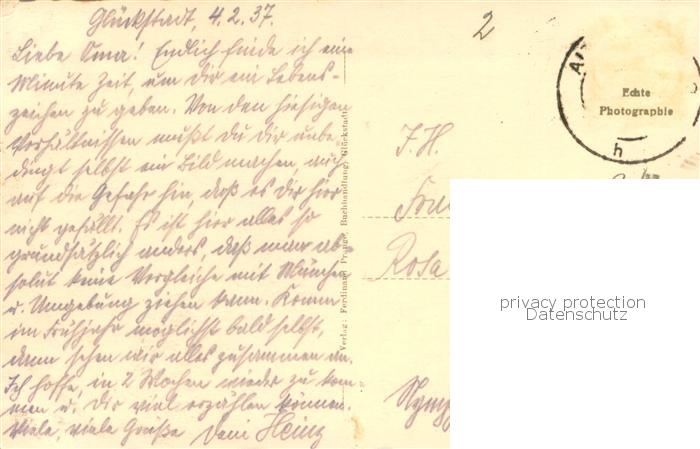 Glückstadt, 4.2.37.
2
Liebe Oma! Endlich finde ich eine
Minute Zeit, um Dir ein Lebens-
zeichen zu geben. Von den hiesigen
Verhältnissen mußt Du Dir unbe-
dingt selbst ein Bild machen, auch
auf die Gefahr hin, daß es Dir hier
nicht gefällt. Es ist hier alles so
grundsätzlich anders, daß man ab-
solut keine Vergleiche mit München
u. Umgebung ziehen kann. Komm
im Frühjahr möglichst bald selbst,
dann sehen wir alles zusammen an.
Ich hoffe, in 2 Wochen wieder zu kom-
men u. Dir viel erzählen können.
Viele, viele Grüße Dein Heinz
Verlag: Ferdinand Prange, Buchhandlung, Glückstadt
Echte
Photographie
h
Frau
Rosa
Nymp
privacy protection
Datenschutz